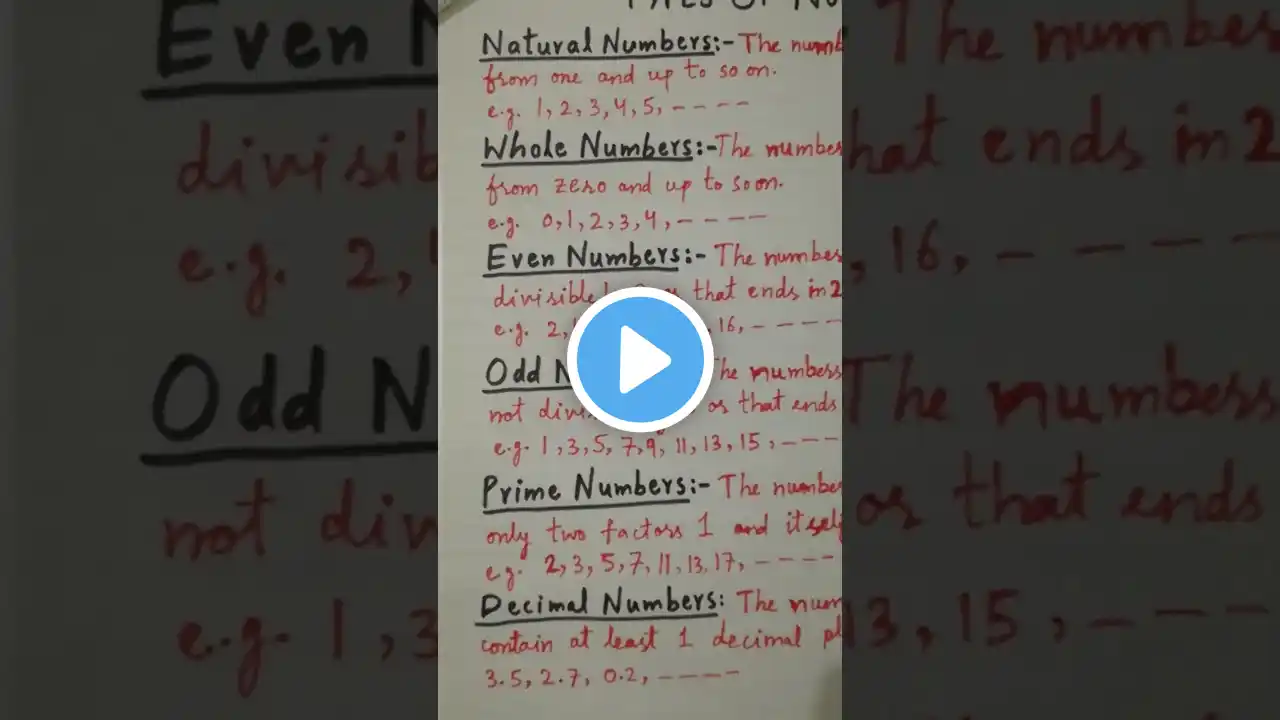 Natural Numbers:- The numb
from one and up to so on.
e.g. 1, 2, 3, 4, 5, - - - -
Whole Numbers:- The number
from zero and up to so on.
e.g. 0, 1, 2, 3, 4, - - - -
Even Numbers:- The numbers
divisible that ends in 2
e.g. 2, 16, - - - -
Odd N The numbers
not divi or that ends
e.g. 1, 3, 5, 7, 9, 11, 13, 15, - - - -
Prime Numbers:- The number
only two factors 1 and itself
e.g. 2, 3, 5, 7, 11, 13, 17, - - - -
Decimal Numbers: The num
contain at least 1 decimal pl
3.5, 2.7, 0.2, - - - -